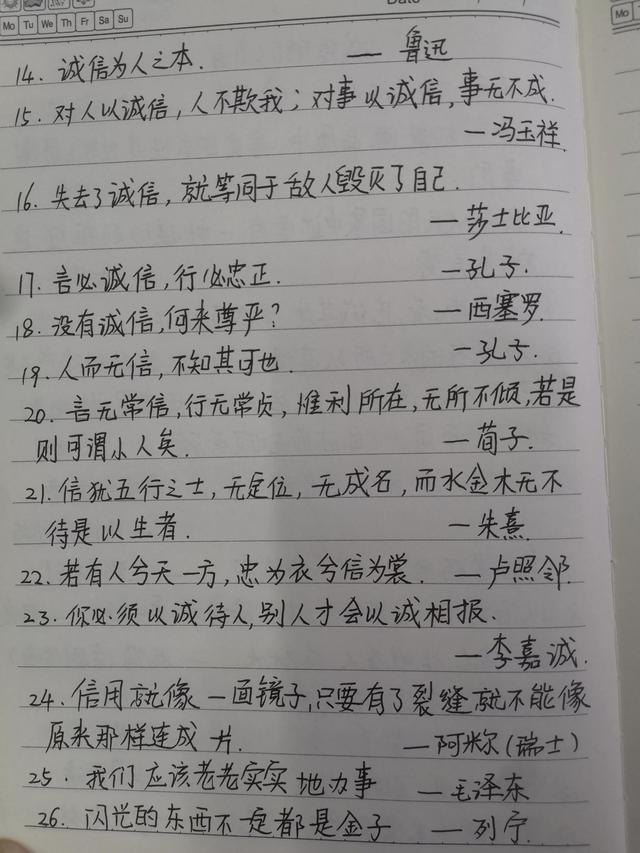 Date
Mo Tu We Th Fr Sa Su
Mo
14. 诚信为人之本. — 鲁迅
15. 对人以诚信，人不欺我；对事以诚信，事无不成.
—冯玉祥.
16. 失去了诚信，就等同于敌人毁灭了自己.
—莎士比亚.
17. 言必诚信，行必忠正. —孔子.
18. 没有诚信，何来尊严？ —西塞罗.
19. 人而无信，不知其可也. —孔子.
20. 言无常信，行无常贞，惟利所在，无所不倾，若是
则可谓小人矣. —荀子.
21. 信犹五行之土，无定位，无成名，而水金木无不
待是以生者. —朱熹.
22. 若有人兮天一方，忠为衣兮信为裳. —卢照邻.
23. 你必须以诚待人，别人才会以诚相报.
—李嘉诚.
24. 信用就像一面镜子，只要有了裂缝就不能像
原来那样连成一片. —阿米尔（瑞士）
25. 我们应该老老实实地办事 —毛泽东
26. 闪光的东西不一定都是金子 —列宁.